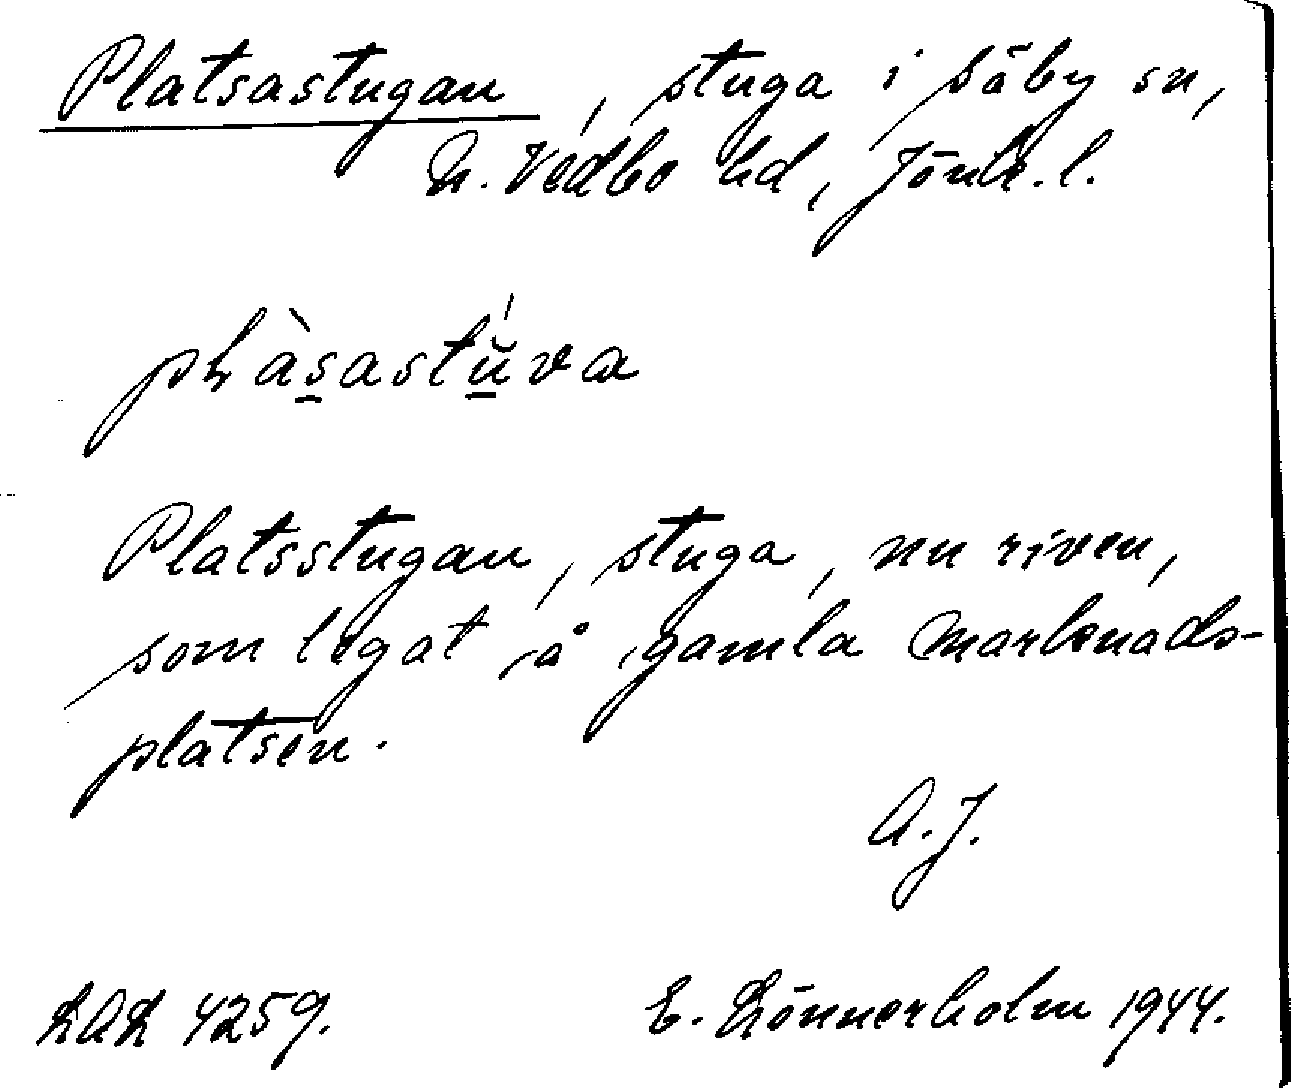 Platsastugan, stuga i Säby sn,
N. Vedbo hd, Jönk. l.
Platsstugan, stuga, nu riven,
som legat å gamla marknads-
platsen.
A.J.
LAL 4259. E. Lönnerholm 1944.